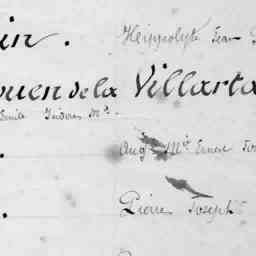 in. Hippolyte Jean
ouen de la Villarta
Emile Isidore Mie.
. Augte Mie Ernest
. Pierre Joseph